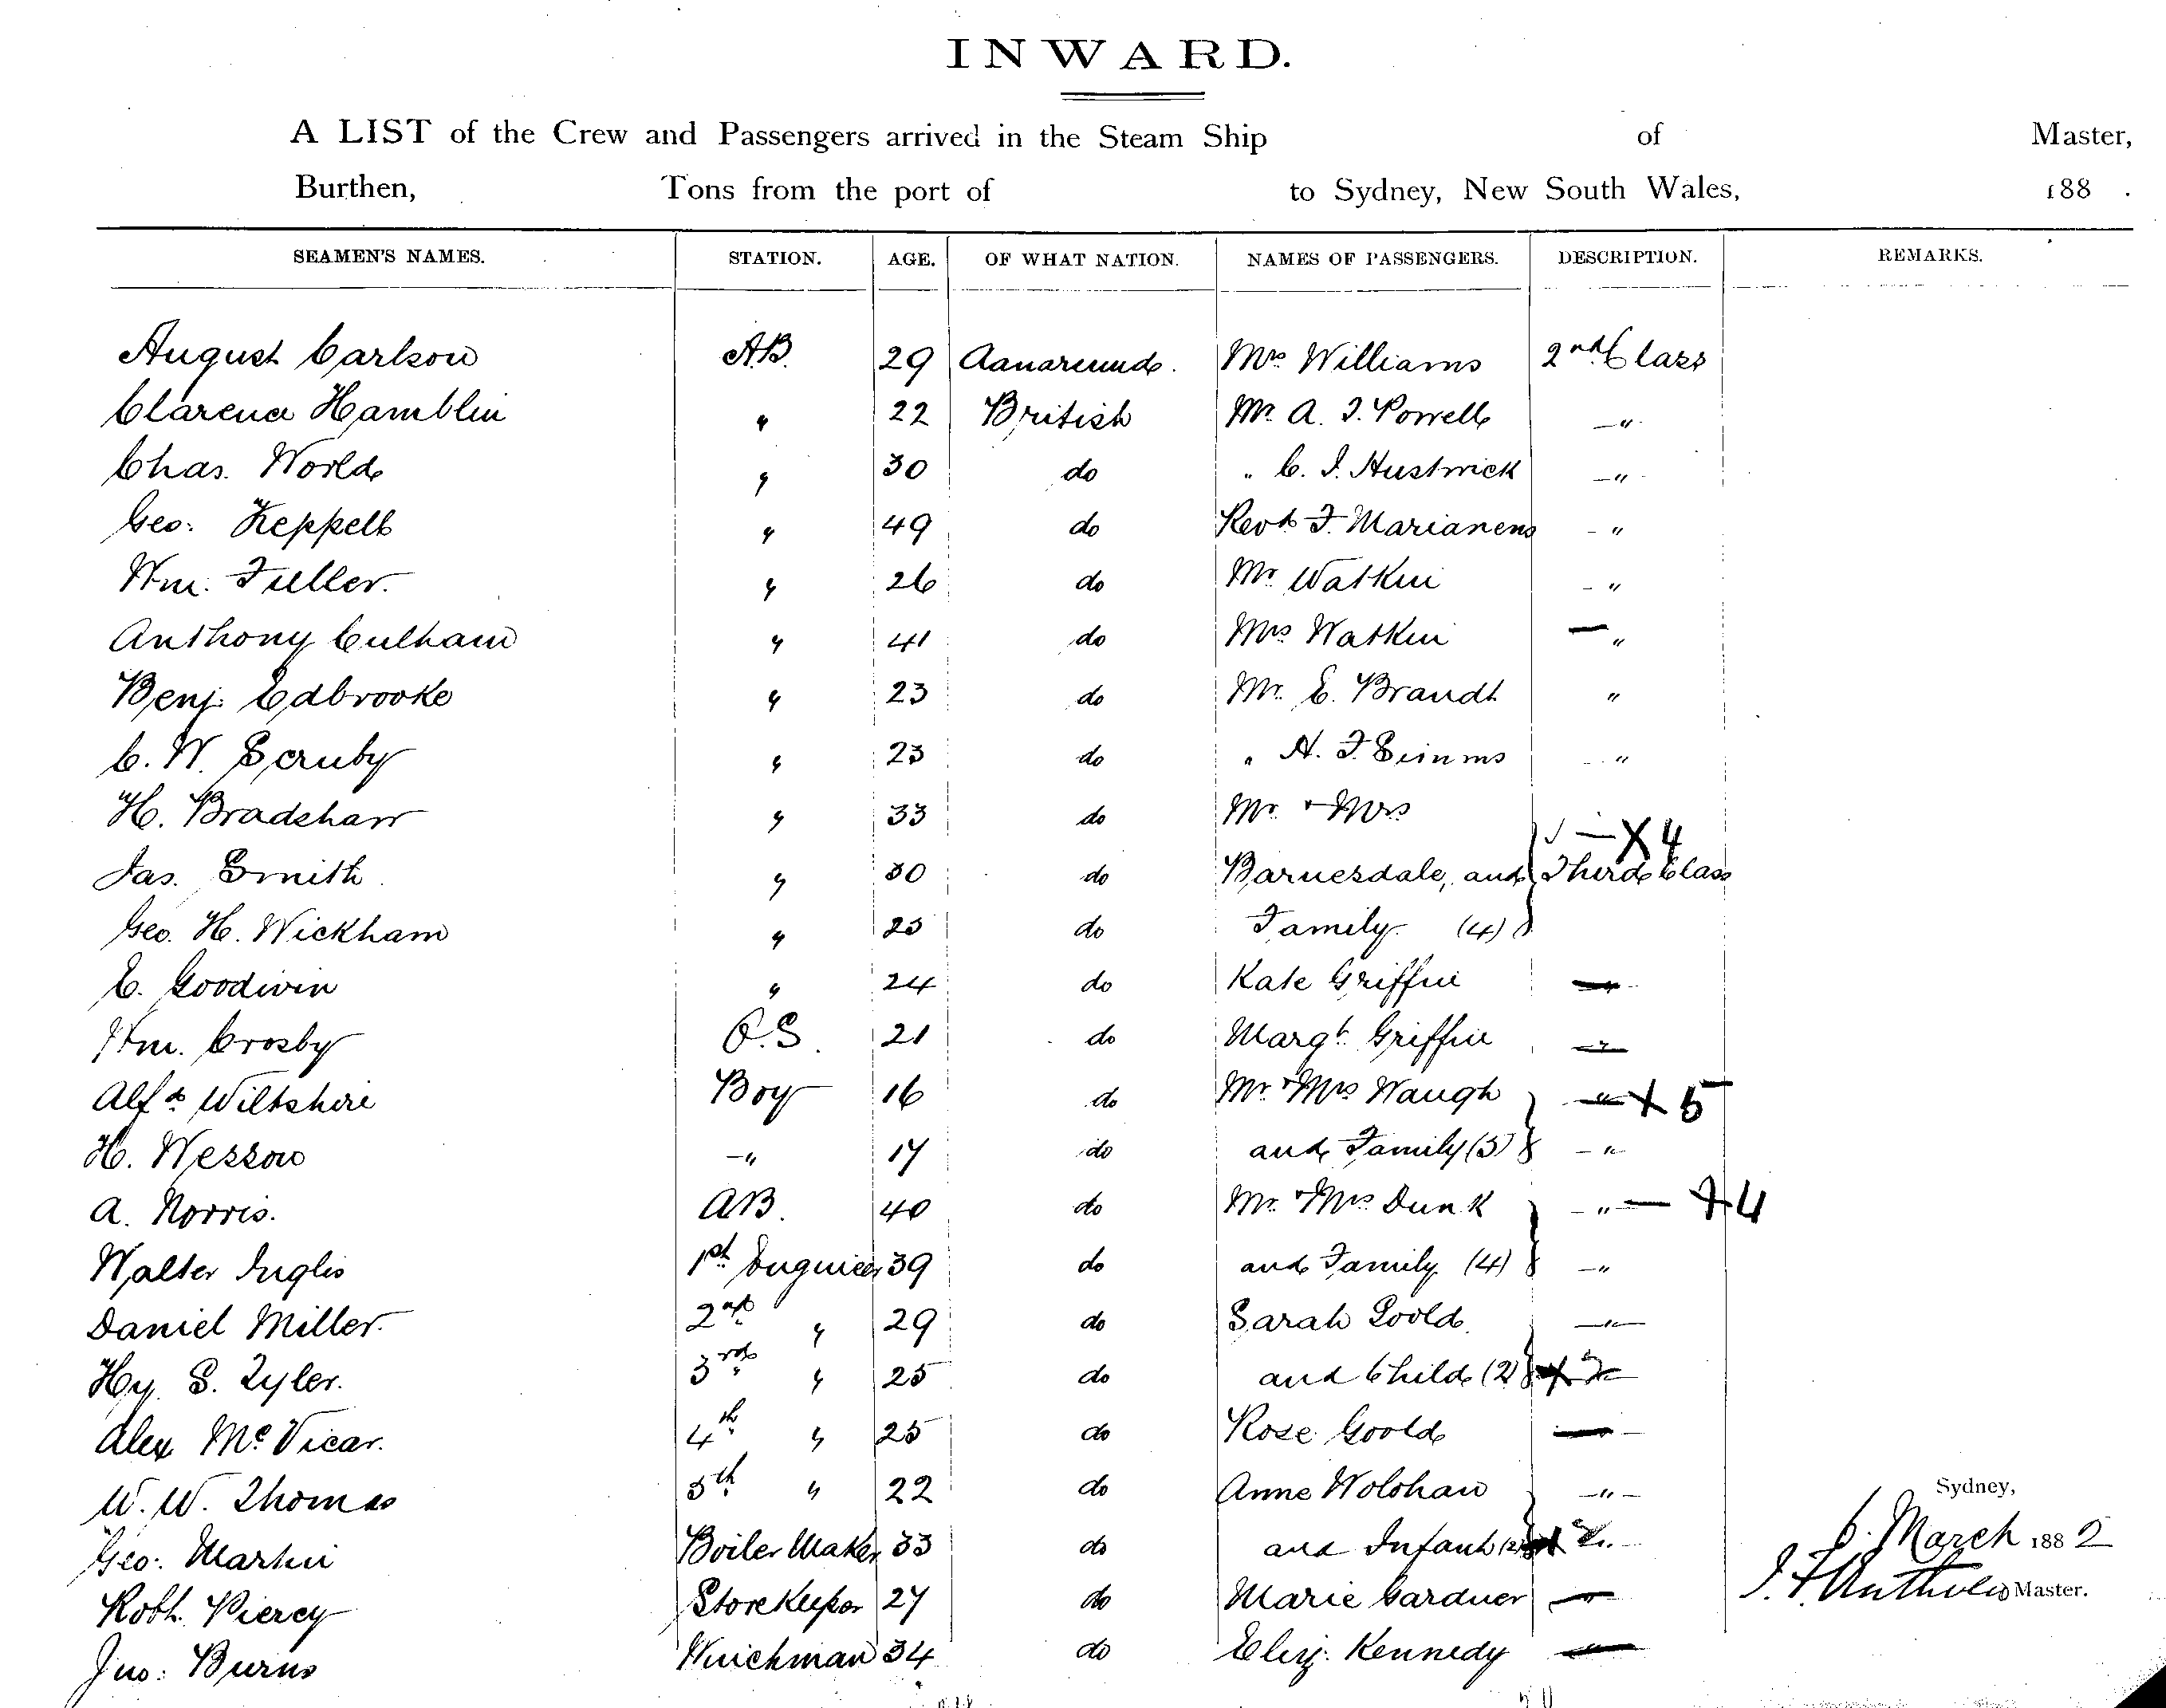 INWARD.
A LIST of the Crew and Passengers arrived in the Steam Ship of Master,
Burthen, Tons from the port of to Sydney, New South Wales, 188 .
SEAMEN'S NAMES. STATION. AGE. OF WHAT NATION. NAMES OF PASSENGERS. DESCRIPTION. REMARKS.
August Carlson A.B. 29 Mrs Williams 2nd Class
Clarence Hamblin " 22 British Mr. A. J. Powell "
Chas. World " 30 do " C. J. Hustwick "
Geo: Keppell " 49 do Revd F. "
Wm. Fuller. " 26 do Mr Watkin "
Anthony Culham " 41 do Mrs Watkin "
Benj. Edbrooke " 23 do Mr. E. Brandt "
C. W. Scruby " 23 do " H. F. Simms "
H. Bradshaw " 33 do Mr. & Mrs
X 4
Jas. Smith " 30 do Barnesdale, and Third Class
Geo. H. Wickham " 25 do Family (4)
E. Goodwin " 24 do Kate Griffin "
Wm. Crosby O.S. 21 do Margt. Griffin "
Alfd Wiltshire Boy 16 do Mr. & Mrs Waugh " X 5
H. Wesson " 17 do and Family (5) "
A. Norris. AB. 40 do Mr. & Mrs Dunk " X 4
Walter Inglis 1st Engineer 39 do and Family (4) "
Daniel Miller. 2nd " 29 do Sarah Goold. "
Hy. S. Tyler. 3rd " 25 do and Child (2) X 2
Alex McVicar. 4th " 25 do Rose Goold "
W. W. Thomas 5th " 22 do Anne Wolohan "
Sydney,
Geo: Martin Boiler Maker 33 do and Infant (2) X 2 6. March 1882
Robt. Piercy Storekeeper 27 do Marie Gardner " Master.
Jno: Burns Winchman 34 do Eliz: Kennedy "